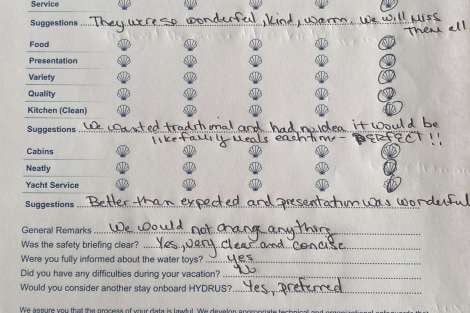 Service
Suggestions They were so wonderful, kind, warm, we will miss
them all
Food
Presentation
Variety
Quality
Kitchen (Clean)
Suggestions We wanted traditional and had no idea it would be
like family meals each time - PERFECT!!
Cabins
Neatly
Yacht Service
Suggestions Better than expected and presentation was wonderful
General Remarks We would not change anything
Was the safety briefing clear? Yes, very clear and concise
Were you fully informed about the water toys? yes
Did you have any difficulties during your vacation? No
Would you consider another stay onboard HYDRUS? Yes, preferred
We assure you that the process of your data is lawful. We develop appropriate technical and organizational safeguards that